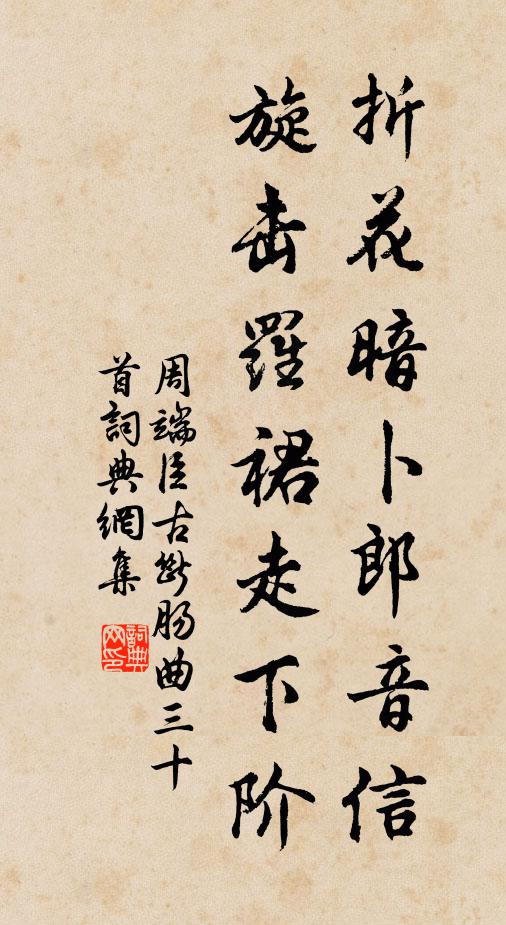 折花暗卜郎音信
旋击羅裙走下阶
周端臣古断肠曲三十
首詞典網集
詞典
网印